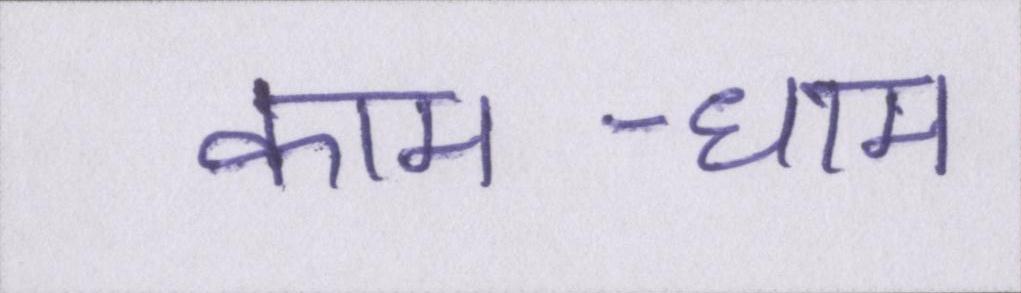 काम -धाम